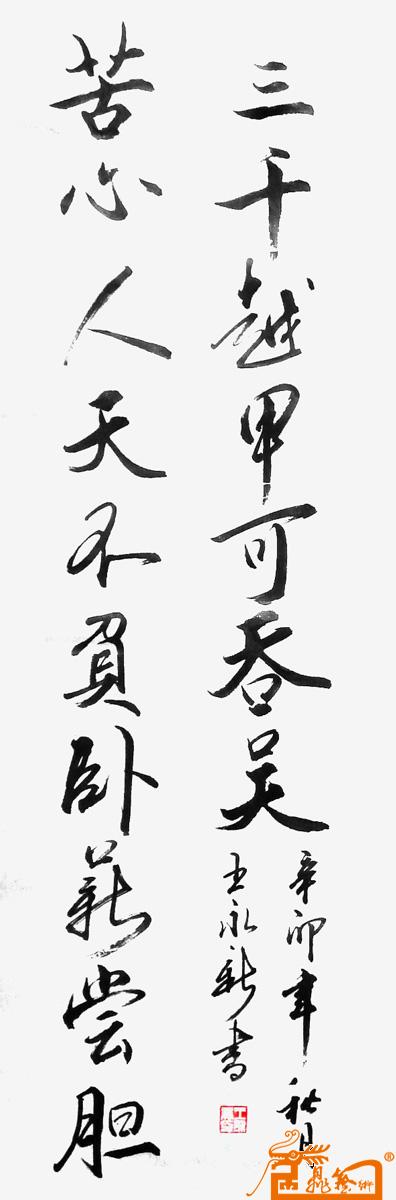 苦心人天不負卧薪尝胆
三千越甲可吞吴
辛卯年秋月
王永新书